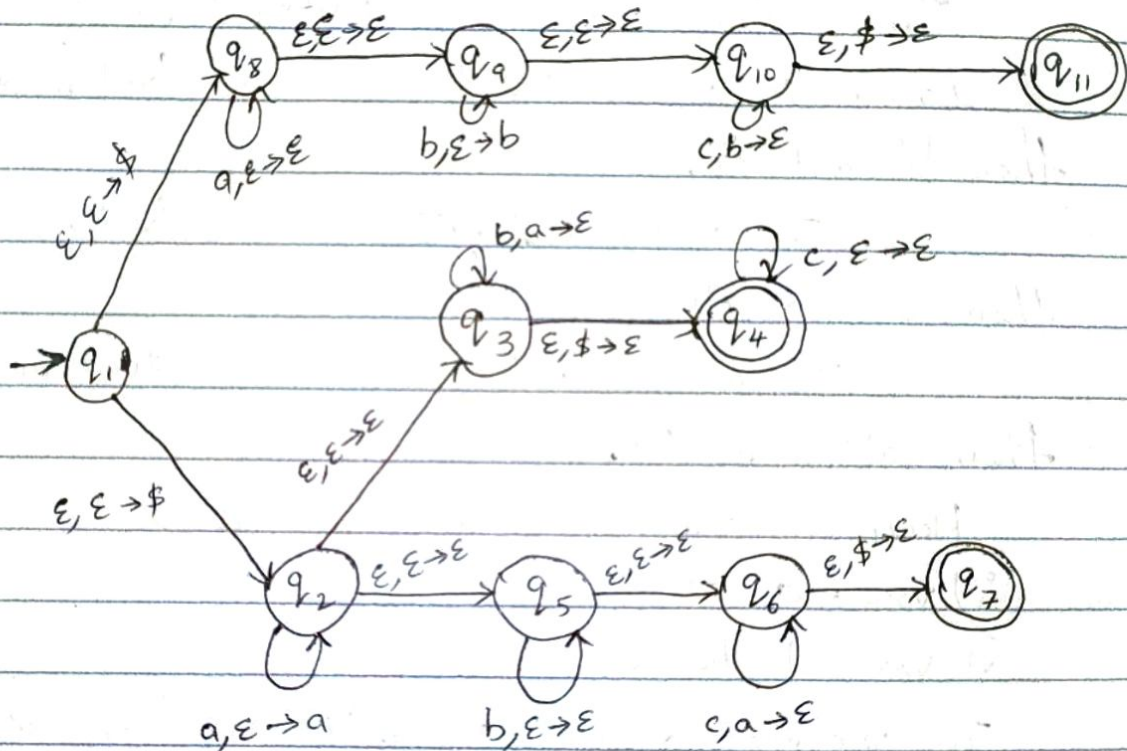 q₈
ε,ε→ε
q₉
ε,ε→ε
q₁₀
ε,$→ε
q₁₁
a,ε→ε
b,ε→b
c,b→ε
ε,ε→$
b,a→ε
c,ε→ε
q₁
q₃
ε,$→ε
q₄
ε,ε→ε
ε,ε→$
q₂
ε,ε→ε
q₅
ε,ε→ε
q₆
ε,$→ε
q₇
a,ε→a
b,ε→ε
c,a→ε